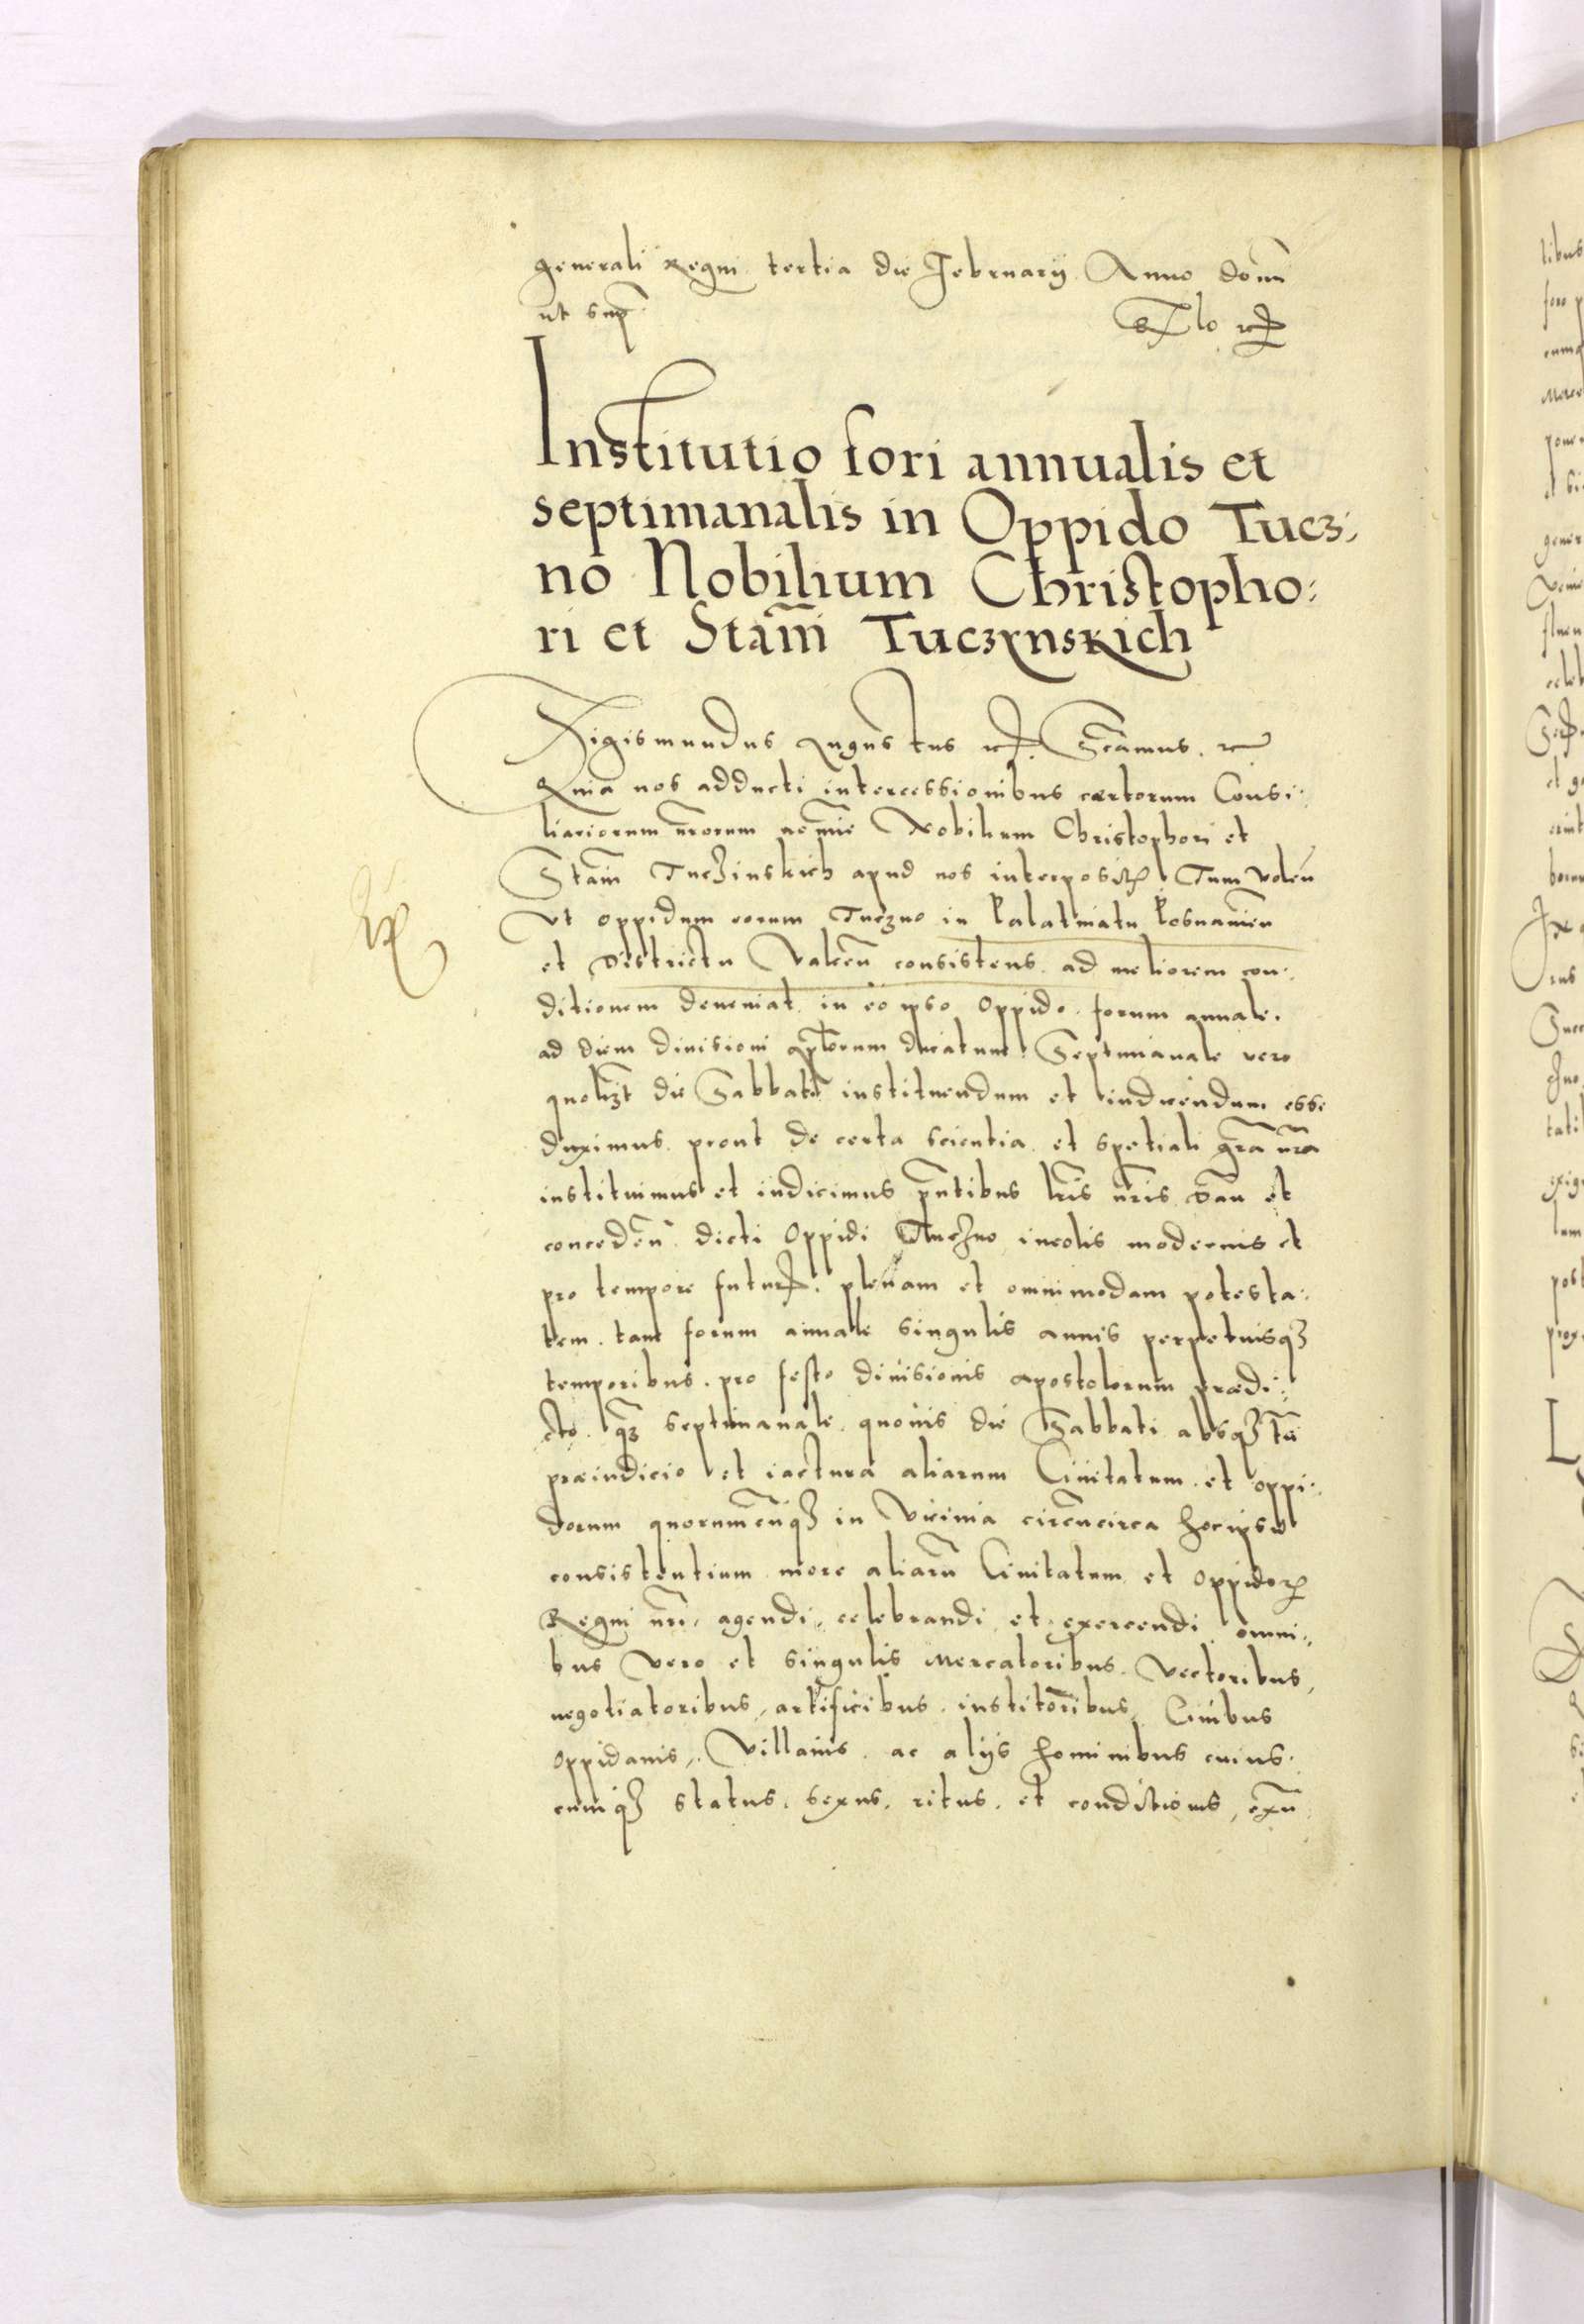 generali Regni tertia die Februarij Anno domī
ut sup̄
Institutio fori annualis et
septimanalis in Oppido Tucz:
no Nobilium Christopho:
ri et Stam̄ Tuczÿnskich
Sigismundus Augustus rcꝫ. Sc̄āmus. rc
Quia nos adducti intercessionibus certorum Consi:
liariorum nr̄orum noīe Nobilium Christophori et
Stam̄ Tuczinskich apud nos interpositꝭ Tum volen̄
Vt oppidum eorum Tuczno in Palatinatu Posnanien̄
et Districtu Valcen̄ consistens ad meliorem con:
ditionem deueniat. in eo ipso Oppido forum annale.
ad diem diuisioni ap̄lorum dicatum Septimanale vero
quolibꝫt die Sabbati instituendum et indicendum esse
duximus. prout de certa scientia et spetiali gr̄a nr̄a
instituimus et indicimus p̄ntibus lr̄is nr̄is Dan̄ et
conceden̄. dicti Oppidi Tuczno incolis modernis et
pro tempore futurꝭ. plenam et omnimodam potesta:
tem. tam forum annale singulis annis perpetuisqꝫ
temporibus. pro festo diuisionis apostolorum prædi:
cto. qꝫ septimanale quouis die Sabbati absqꝫ tn̄
præiudicio et iactura aliarum Ciuitatum et oppi:
dorum quorumcunqꝫ in Vicinia circumcirca hocipso
consistentium more aliarū Ciuitatum et Oppidorꝭ
Regni nr̄i, agendi, celebrandi et exercendi omni:
bus vero et singulis Mercatoribus. Vectoribus,
negotiatoribus, artificibus, institoribus, Ciuibus
Oppidanis, Villanis. ac alijs hominibus cuius.
cumqꝫ status. sexus. ritus. et conditionis, exn̄